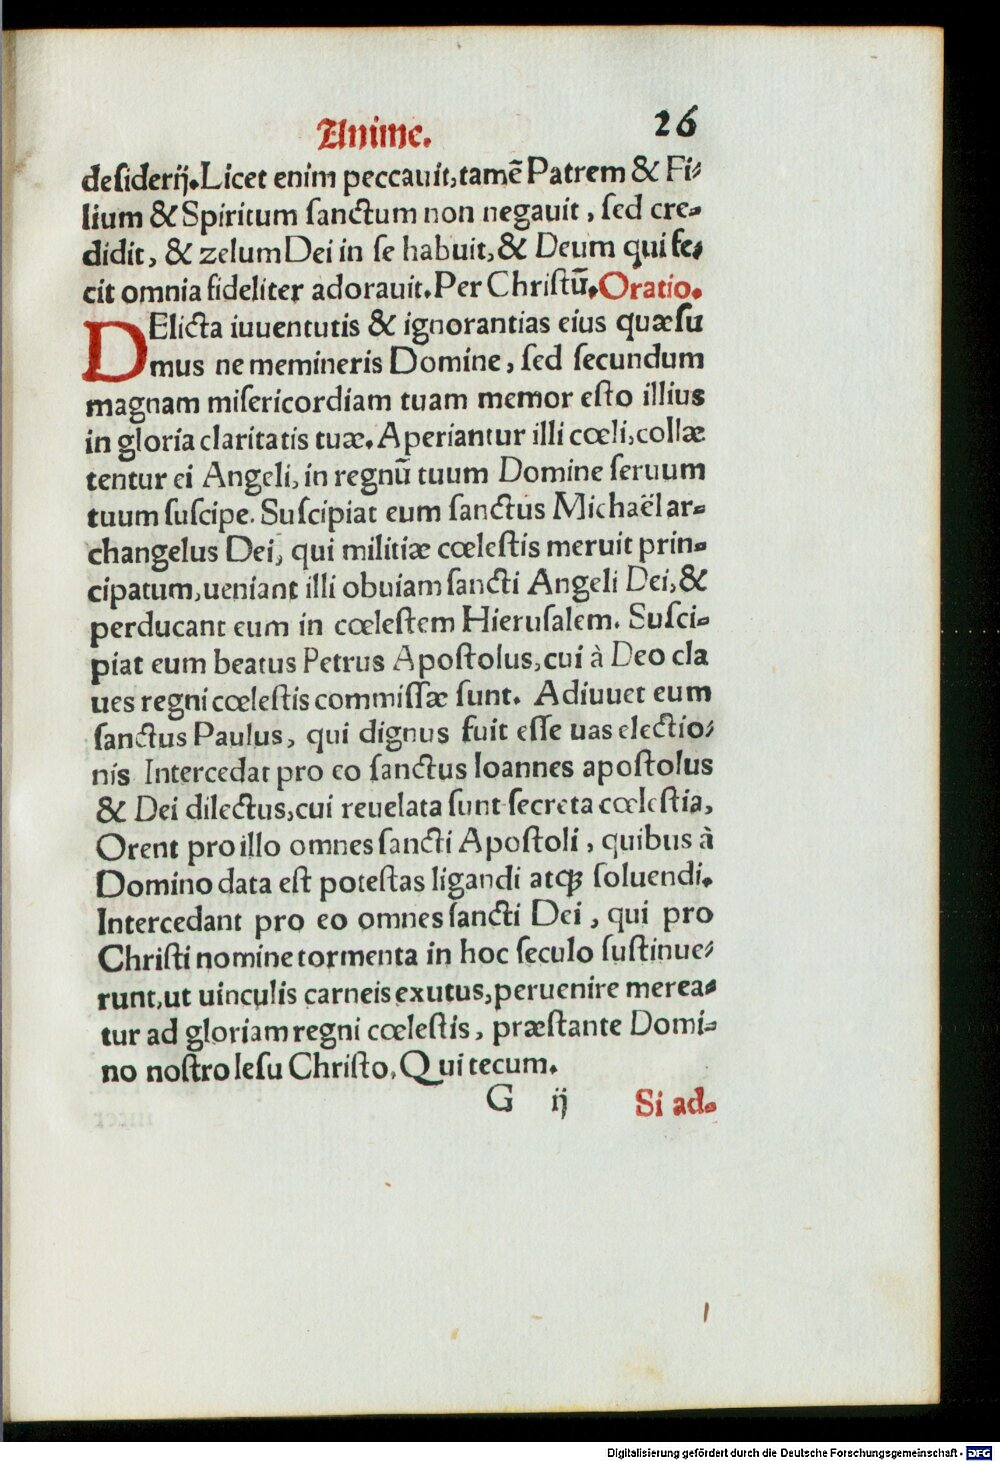 Anime. 26
desiderij. Licet enim peccauit, tamē Patrem & Fi-
lium & Spiritum sanctum non negauit, sed cre-
didit, & zelum Dei in se habuit, & Deum qui fe-
cit omnia fideliter adorauit. Per Christū. Oratio.
DElicta iuuentutis & ignorantias eius quæsu
mus ne memineris Domine, sed secundum
magnam misericordiam tuam memor esto illius
in gloria claritatis tuæ. Aperiantur illi cœli, collæ
tentur ei Angeli, in regnū tuum Domine seruum
tuum suscipe. Suscipiat eum sanctus Michaël ar-
changelus Dei, qui militiæ cœlestis meruit prin-
cipatum, ueniant illi obuiam sancti Angeli Dei, &
perducant eum in cœlestem Hierusalem. Susci-
piat eum beatus Petrus Apostolus, cui à Deo cla
ues regni cœlestis commissæ sunt. Adiuuet eum
sanctus Paulus, qui dignus fuit esse uas electio-
nis Intercedat pro eo sanctus Ioannes apostolus
& Dei dilectus, cui reuelata sunt secreta cœlestia,
Orent pro illo omnes sancti Apostoli, quibus à
Domino data est potestas ligandi atqꝫ soluendi.
Intercedant pro eo omnes sancti Dei, qui pro
Christi nomine tormenta in hoc seculo sustinue-
runt, ut uinculis carneis exutus, peruenire merea-
tur ad gloriam regni cœlestis, præstante Domi-
no nostro Iesu Christo, Qui tecum.
G ij Si ad-
Digitalisierung gefördert durch die Deutsche Forschungsgemeinschaft - DFG